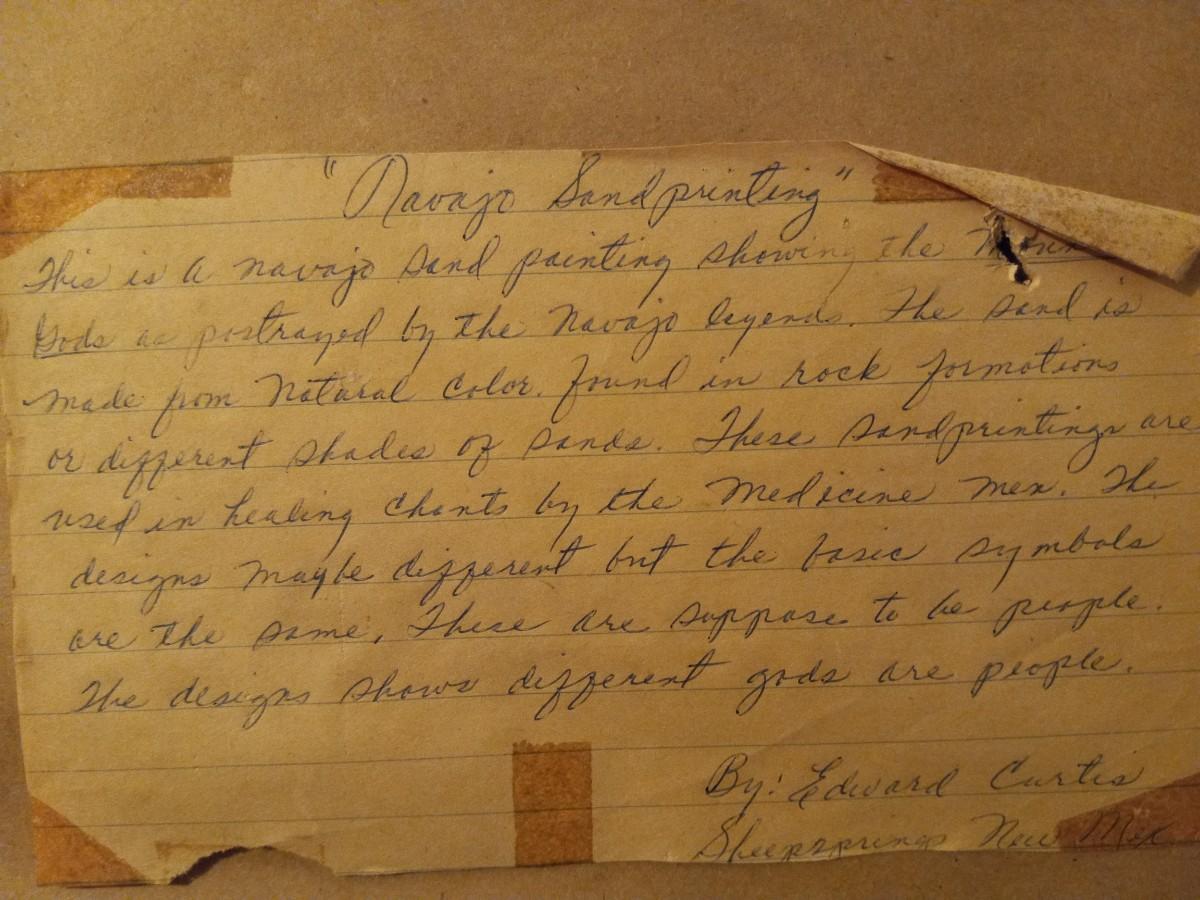 "Navajo Sandprinting"
This is a navajo sand painting showing the
Gods as postrayed by the Navajo legends. The sand is
made from Natural Color. found in rock formations
or different shades of sands. These sandprintings are
used in healing chants by the Medicine Men. The
designs maybe different but the basic symbols
are the same. These are suppose to be people.
The designs shows different gods are people.
By: Edward Curtis
Sheepsprings New Mex